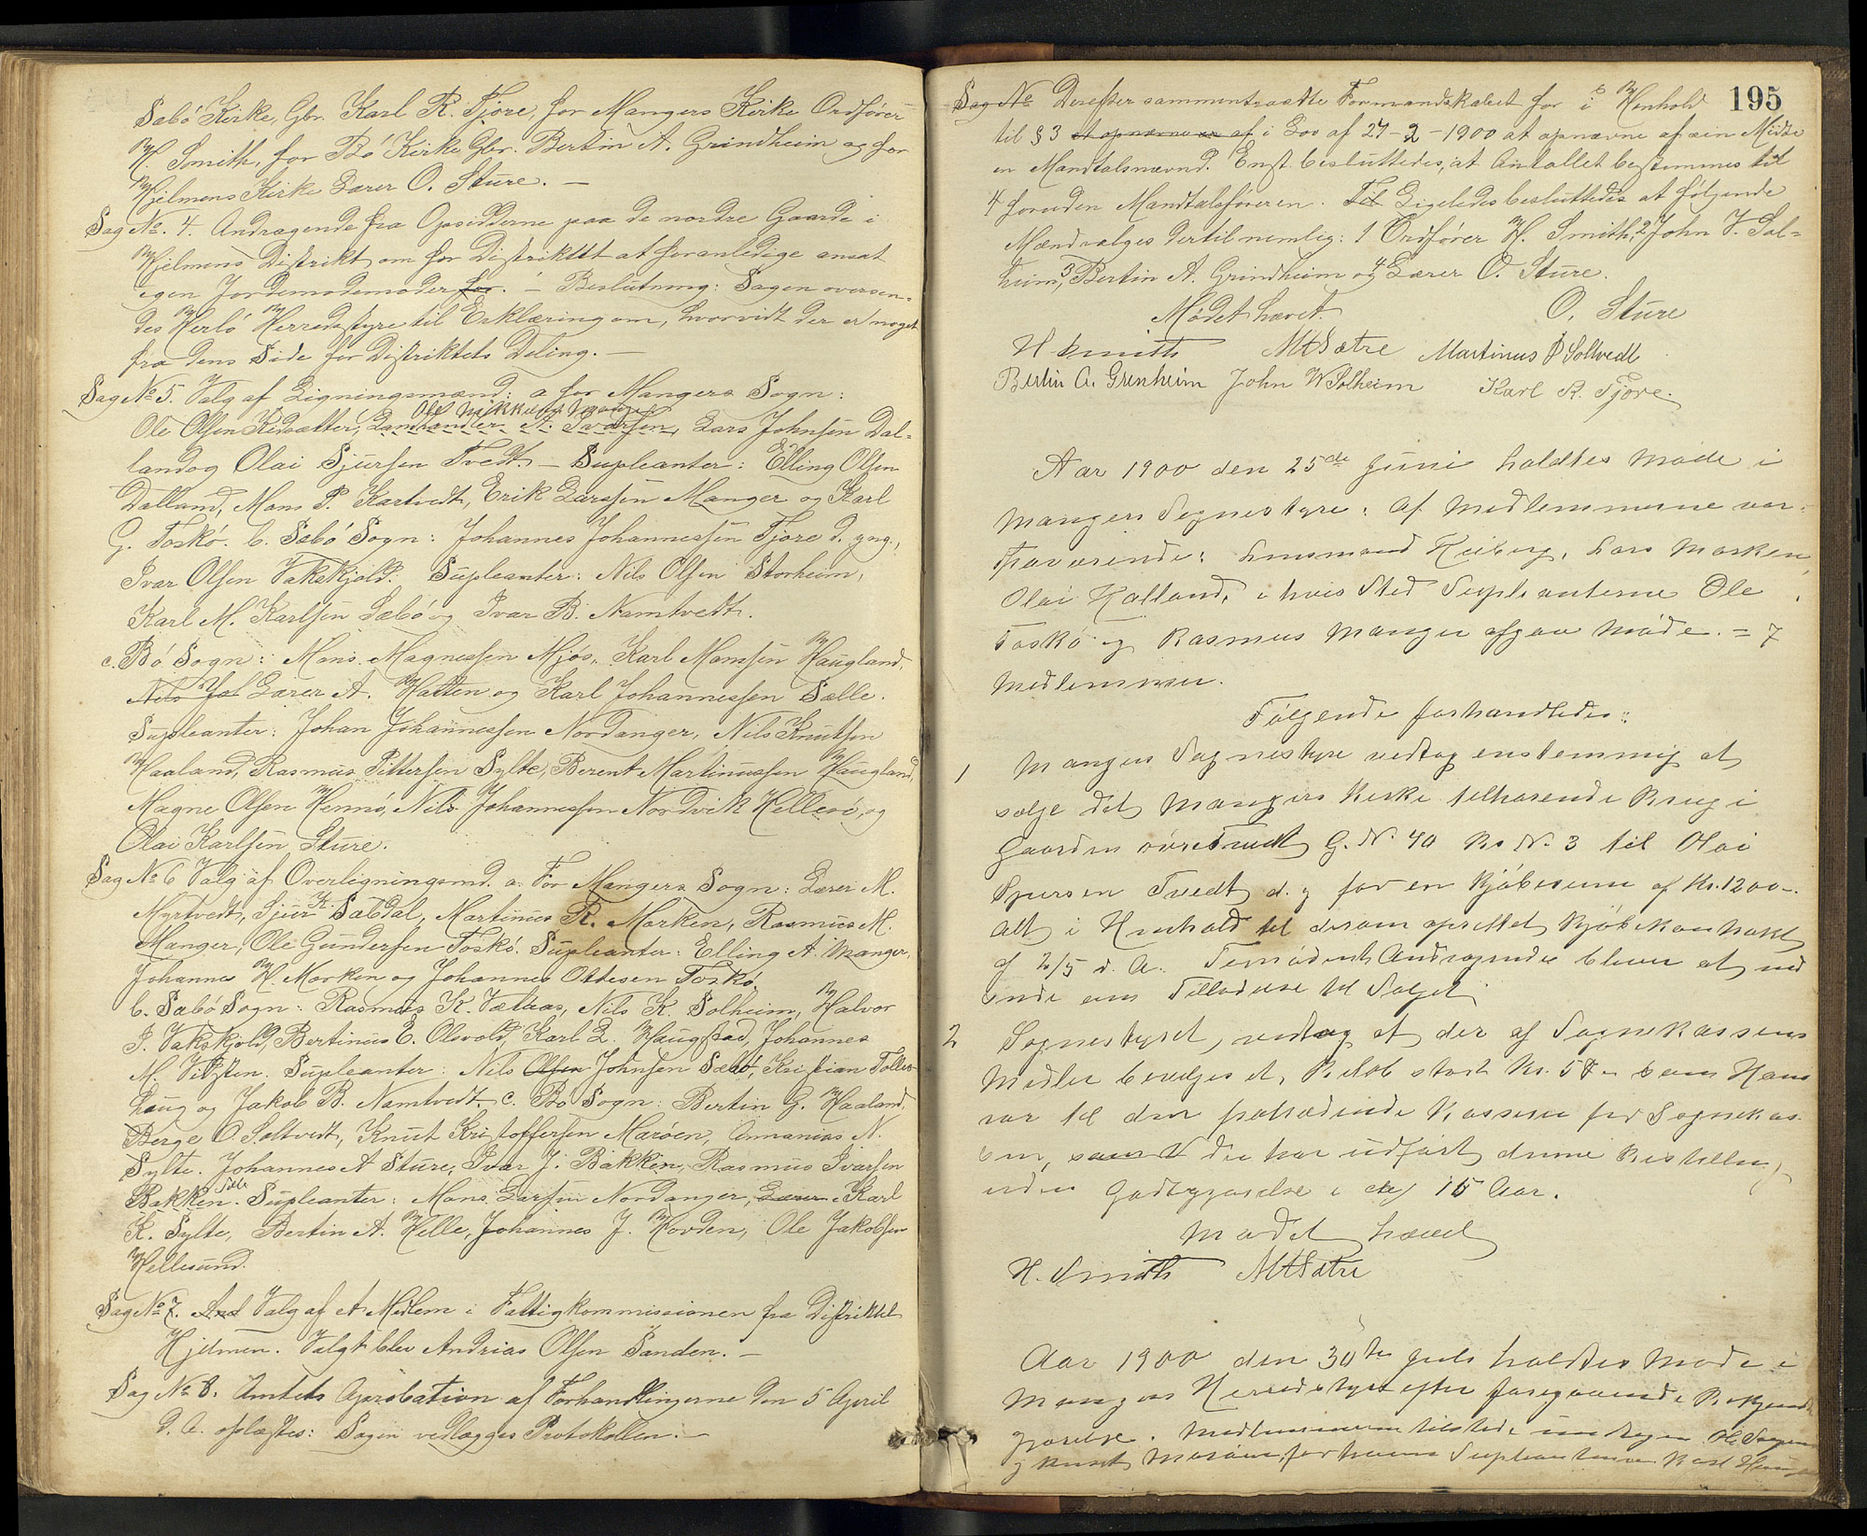 Sæbö Kirke, Gbr. Karl R. Fjore, for Mangers Kirke Ordförer
H. Smith, for Bö Kirke Gbr. Bertin A. Grindheim og for
Hjelmens Kirke Lærer O. Sture. —
Sag No. 4. Andragende fra Opsidderne paa de nordre Gaarde i
Hjelmens Distrikt om for Distriktet at foranledige ansat
egen Jordemodemoder for. — Beslutning: Sagen oversen-
des Herlö Herredsstyre til Erklæring om, hvorvidt der er noget
fra dens Side for Distriktets Deling. —
Sag No 5. Valg af Ligningsmænd: a for Mangers Sogn:
Ole Mikkelsen Manger
Ole Olsen Kvdsætter, Landhandler A. Ivarsen, Lars Johnsen Dal-
land og Olai Sjursen Tvedt — Supleanter: Elling Olsen
Dalland, Mons P. Kartvedt, Erik Larssen Manger og Karl
G. Toskö. b. Sæbö Sogn: Johannes Johannessen Fjore d. yng.,
Ivar Olsen Vakskjold. Supleanter: Nils Olsen Storheim,
Karl M. Karlsen Sæbö og Ivar B. Namtvedt.
c. Bö Sogn: Mons Magnessen Mjös, Karl Monssen Haugland,
Nils Joh Lærer A. Hatten og Karl Johannessen Sælle.
Supleanter: Johan Johannessen Nordanger, Nils Knutsen
Haaland, Rasmus Pittersen Sylte, Berent Martinussen Haugland,
Magne Olsen Hennö, Nils Johannessen Nordvik Hellesö, og
Olai Karlsen Sture.
Sag No 6 Valg af Overligningsmd. a. For Mangers Sogn: Lærer M.
Myrtvedt, Sjur K. Sæbdal, Martinus R. Marken, Rasmus M.
Manger, Ole Gundersen Toskö. Supleanter: Elling A. Manger,
Johannes H. Marken og Johannes Ottesen Toskö.
b. Sæbö Sogn: Rasmus K. Vætaas, Nils K. Solheim, Halvor
I. Vakskjold, Bertinus E. Olsvold, Karl L. Haugstad, Johannes
M. Supleanter: Nils Olsen Johnsen Sæbö, Kristian Tolles-
haug og Jakob B. Namtvedt. c. Bö Sogn: Bertin G. Haaland,
Berge O. Soltvedt, Knut Kristoffersen Maröen, Annanias N.
Sylte. Johannes A Sture, Ivar J. Bakken, Rasmus Ivarsen
Bakken. Supleanter: Mons Larsen Nordanger, Lærer Karl
K. Sylte, Bertin A. Helle, Johannes J. Hovden, Ole Jakobsen
Hellesund.
Sag No 7. And Valg af et Medlem i Fattigkommissionen fra Distriktet
Hjelmen. Valgt blev Andrias Olsen Sanden. —
Sag No 8. Amtets Aprobation af Forhandlingerne den 5 April
d. A. oplæstes: Sagen vedlægges Protokollen. —
195
Sag No Derefter sammentraadte Formandskabet for i Henhold
til § 3 at opnævne en af i Lov af 27-2-1900 at opnævne af sin Midte
en Mandtalsnævnd. Enst. besluttedes, at Antallet bestemmes til
4 foruden Mandtalsföreren. Til Ligeledes besluttedes at fölgende
Mænd vælges dertil nemlig: 1 Ordförer H. Smith, 2 John V. Sol-
heim, 3 Bertin A. Grindheim og 4 Lærer O. Sture.
Mödet hævet. O. Sture
H Smith MHSætre Martinus P Soltvedt
Bertin A. Grenheim John W Solheim Karl R. Fjore.
Aar 1900 den 25de Juni holdtes Möde i
Mangers Sognestyre: Af Medlemmerne var
fraværende: Lensmand Heiberg, Lars Marken,
Olai Halland, i hvis Sted Supleanterne Ole
Toskö og Rasmus Manger afgav Möde. = 7
Medlemmer.
Fölgende forhandledes:
1 Mangers Sognestyre vedtog enstemmig at
sælge det Mangers Kirke tilhörende Brug i
Gaarden övre Tvedt G. N. 40 Br. N. 3 til Olai
Sjursen Tvedt d. y for en Kjöbesum af Kr. 1200-.
Alt i Henhold til derom oprettet Kjöbekontrakt
af 2/5 d. A. Andragende bliver at ind
sende om Tilladelse til Salget
2 Sognestyret vedtog at der af Sognekassens
Midler bevilges et Belöb stort Kr. 50 som Hono
rar til den fratrædende Kasserer for Sognekas-
sen, som der har udfört denne Bestilling
uden Godtgjörelse i 15 Aar.
Mödet hævet
H. Smith MHSætre
Aar 1900 den 30te Juli holdtes Möde i
Mangers Herredsstyre efter foregaaende Bekjendt
gjörelse. Medlemmerne tilstede undtagen
og Knut Maröen, for hvem Supleanterne Karl